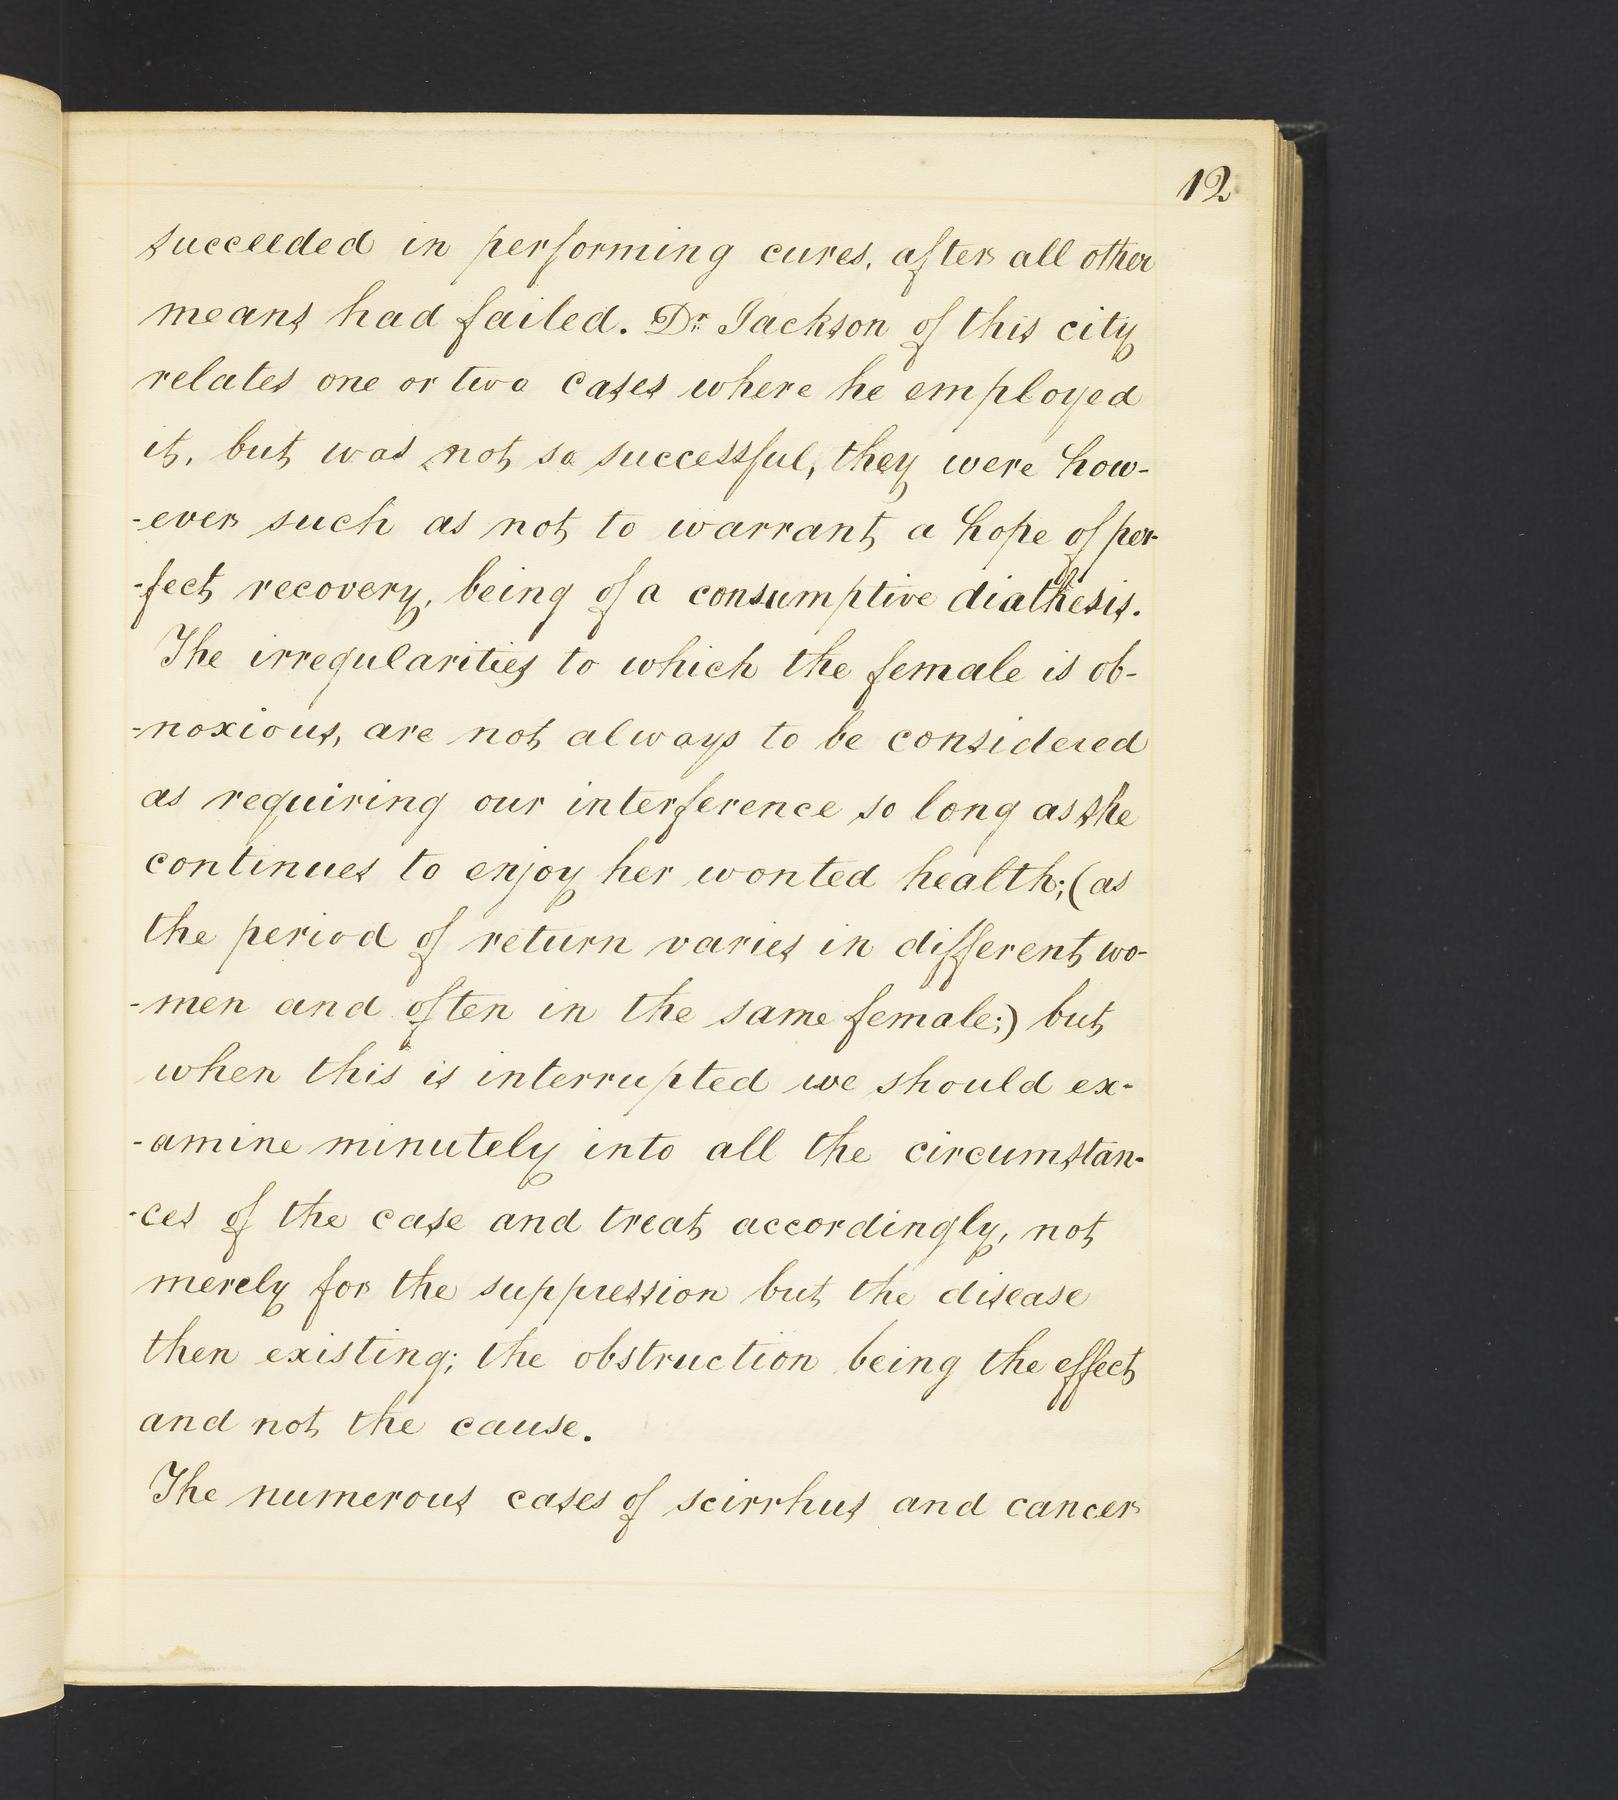 12
succeeded in performing cures, after all other
means had failed. Dr. Jackson of this city
relates one or two cases where he employed
it, but was not so successful, they were how-
-ever such as not to warrant a hope of per-
-fect recovery, being of a consumptive diathesis.
The irregularities to which the female is ob-
-noxious, are not always to be considered
as requiring our interference so long as she
continues to enjoy her wonted health; (as
the period of return varies in different wo-
-men and often in the same female;) but
when this is interrupted we should ex-
-amine minutely into all the circumstan-
-ces of the case and treat accordingly, not
merely for the suppression but the disease
then existing; the obstruction being the effect
and not the cause.
The numerous cases of scirrhus and cancer